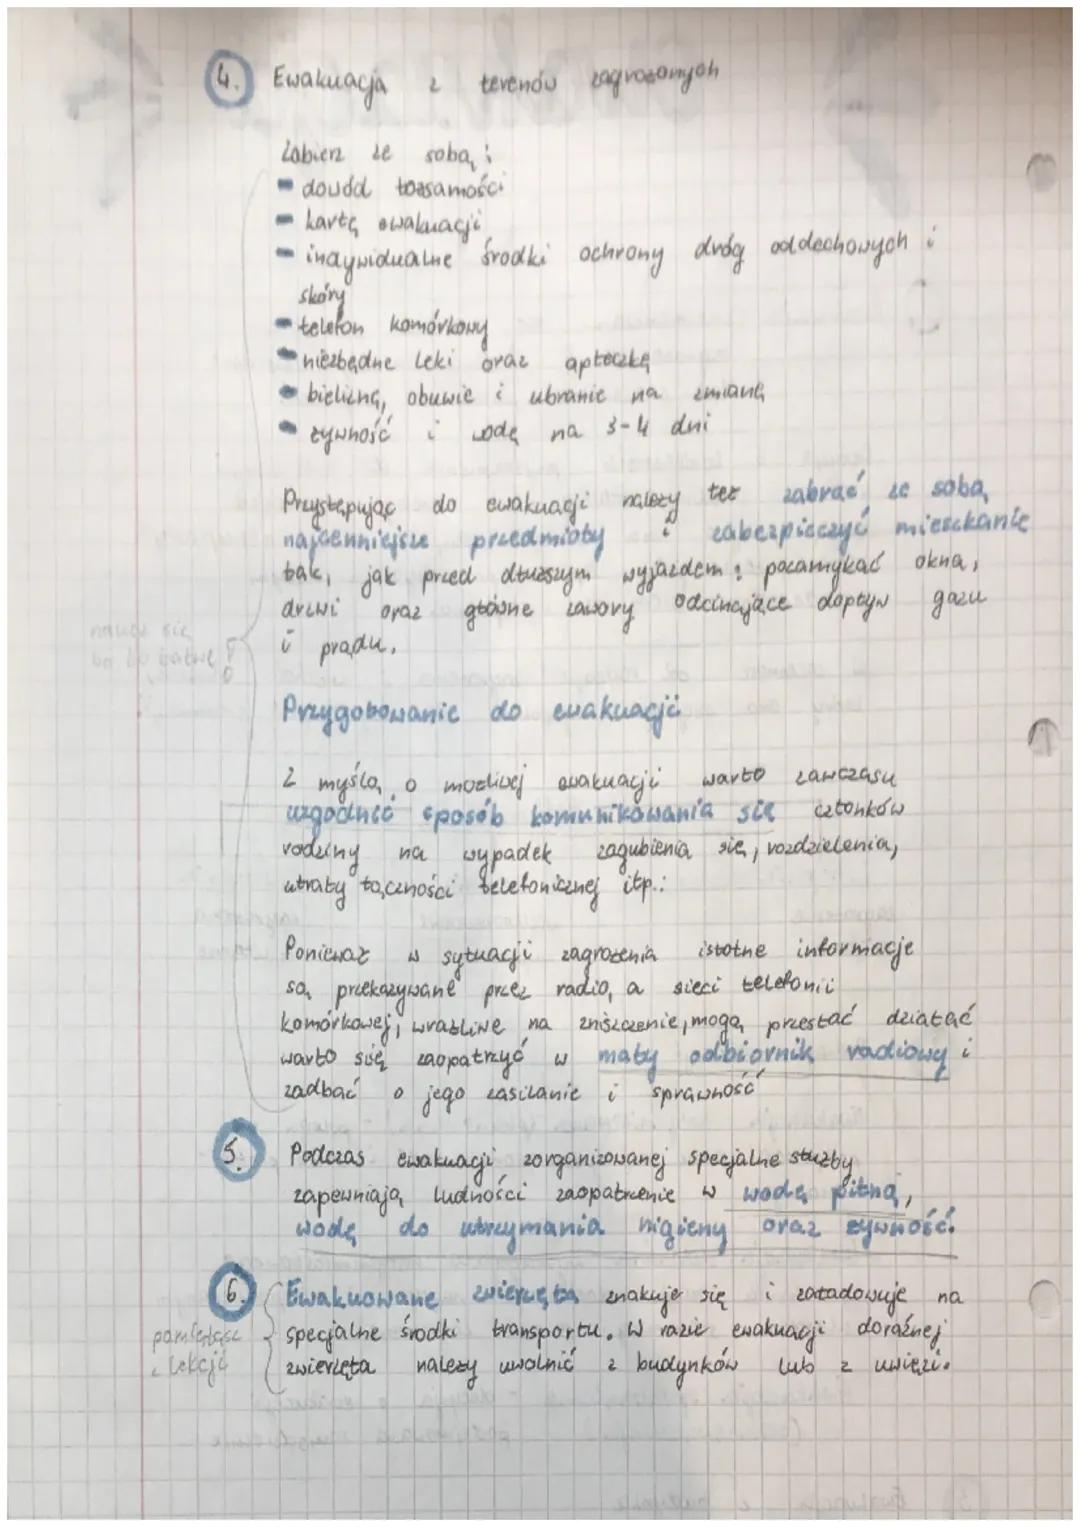 4. Ewakuacja z terenów zagrożonych
Zabierz ze sobą:
- dowód tożsamości
- kartę ewakuacji
- indywidualne środki ochrony dróg oddechowych i
skóry
- telefon komórkowy
- niezbędne leki oraz apteczkę
- bieliznę, obuwie i ubranie na zmianę
- żywność i wodę na 3-4 dni
Przystępując do ewakuacji należy też zabrać ze sobą
najcenniejsze przedmioty i zabezpieczyć mieszkanie
tak, jak przed dłuższym wyjazdem: pozamykać okna,
drzwi oraz główne zawory odcinające dopływ gazu
i prądu.
naucz się
bo to łatwe !
Przygotowanie do ewakuacji
Z myślą o możliwej ewakuacji warto zawczasu
uzgodnić sposób komunikowania się członków
rodziny na wypadek zagubienia się, rozdzielenia,
utraty łączności telefonicznej itp.:
Ponieważ w sytuacji zagrożenia istotne informacje
są przekazywane przez radio, a sieci telefonii
komórkowej, wrażliwe na zniszczenie, mogą przestać działać
warto się zaopatrzyć w mały odbiornik radiowy i
zadbać o jego zasilanie i sprawność
5. Podczas ewakuacji zorganizowanej specjalne służby
zapewniają ludności zaopatrzenie w wodę pitną,
wodę do utrzymania higieny oraz żywność.
6. Ewakuowane zwierzęta znakuje się i załadowuje na
specjalne środki transportu. W razie ewakuacji doraźnej
zwierzęta należy uwolnić z budynków lub z uwięzi.
pamiętasz
z lekcji